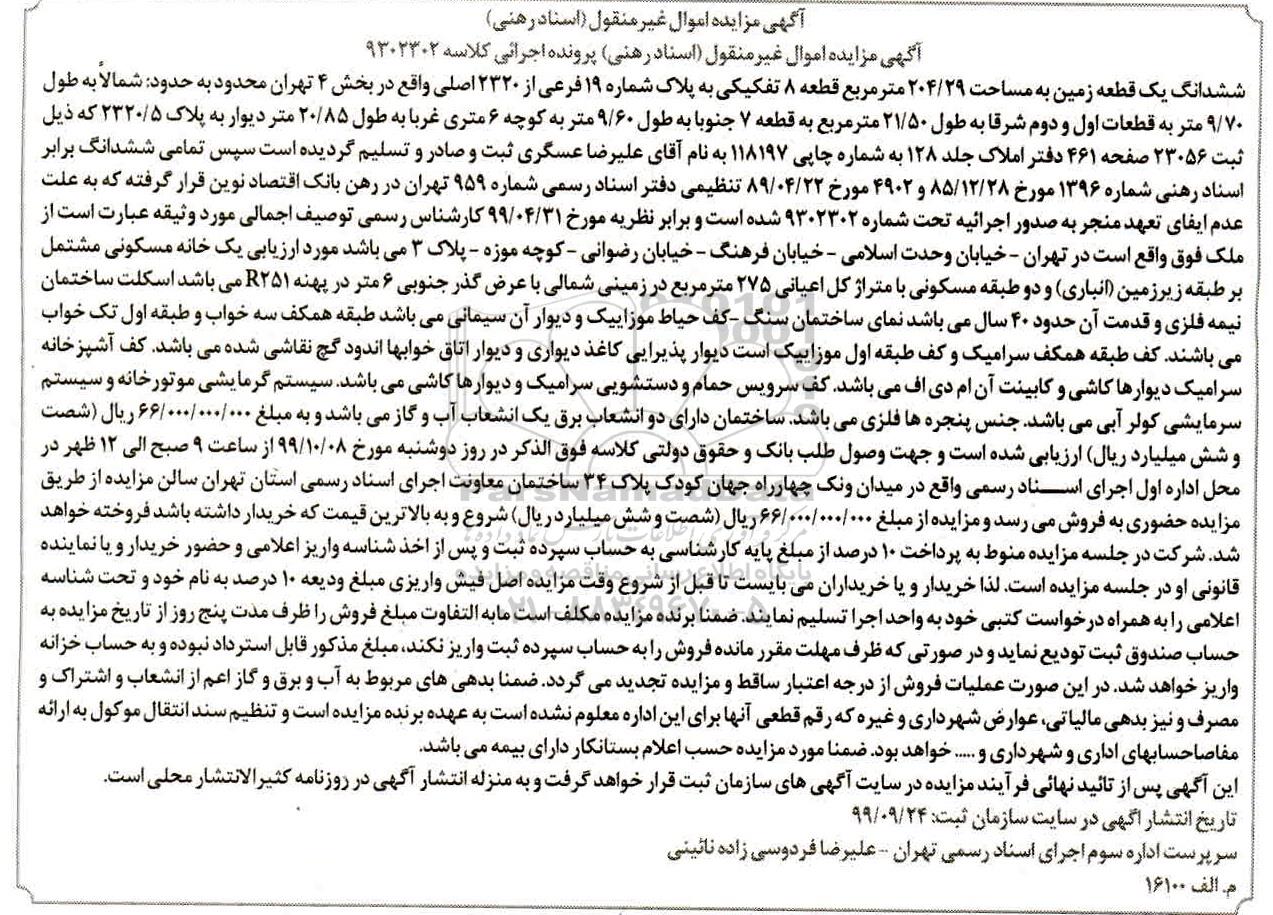 آگهی مزایده اموال غیر منقول (اسناد رهنی)
آگهی مزایده اموال غیر منقول (اسناد رهنی) پرونده اجرائی کلاسه ۹۳۰۲۳۰۲
ششدانگ یک قطعه زمین به مساحت ۲۰۴/۲۹ مترمربع قطعه ۸ تفکیکی به پلاک شماره ۱۹ فرعی از ۲۳۲۰ اصلی واقع در بخش ۴ تهران محدود به حدود: شمالاً به طول
۹/۷۰ متر به قطعات اول و دوم شرقا به طول ۲۱/۵۰ مترمربع به قطعه ۷ جنوبا به طول ۹/۶۰ متر به کوچه ۶ متری غربا به طول ۲۰/۸۵ متر دیوار به پلاک ۲۳۲۰/۵ که ذیل
ثبت ۲۳۰۵۶ صفحه ۴۶۱ دفتر املاک جلد ۱۲۸ به شماره چاپی ۱۱۸۱۹۷ به نام آقای علیرضا عسگری ثبت و صادر و تسلیم گردیده است سپس تمامی ششدانگ برابر
اسناد رهنی شماره ۱۳۹۶ مورخ ۸۵/۱۲/۲۸ و ۴۹۰۲ مورخ ۸۹/۰۴/۲۲ تنظیمی دفتر اسناد رسمی شماره ۹۵۹ تهران در رهن بانک اقتصاد نوین قرار گرفته که به علت
عدم ایفای تعهد منجر به صدور اجرائیه تحت شماره ۹۳۰۲۳۰۲ شده است و برابر نظریه مورخ ۹۹/۰۴/۳۱ کارشناس رسمی توصیف اجمالی مورد وثیقه عبارت است از
ملک فوق واقع است در تهران – خیابان وحدت اسلامی – خیابان فرهنگ – خیابان رضوانی – کوچه موزه – پلاک ۳ می باشد مورد ارزیابی یک خانه مسکونی مشتمل
بر طبقه زیرزمین (انباری) و دو طبقه مسکونی با متراژ کل اعیانی ۲۷۵ مترمربع در زمینی شمالی با عرض گذر جنوبی ۶ متر در پهنه R۲۵۱ می باشد اسکلت ساختمان
نیمه فلزی و قدمت آن حدود ۴۰ سال می باشد نمای ساختمان سنگ – کف حیاط موزاییک و دیوار آن سیمانی می باشد طبقه همکف سه خواب و طبقه اول تک خواب
می باشند. کف طبقه همکف سرامیک و کف طبقه اول موزاییک است دیوار پذیرایی کاغذ دیواری و دیوار اتاق خوابها اندود گچ نقاشی شده می باشد. کف آشپزخانه
سرامیک دیوارها کاشی و کابینت آن ام دی اف می باشد. کف سرویس حمام و دستشویی سرامیک و دیوارها کاشی می باشد. سیستم گرمایشی موتورخانه و سیستم
سرمایشی کولر آبی می باشد. جنس پنجره ها فلزی می باشد. ساختمان دارای دو انشعاب برق یک انشعاب آب و گاز می باشد و به مبلغ ۶۶/۰۰۰/۰۰۰/۰۰۰ ریال (شصت
و شش میلیارد ریال) ارزیابی شده است و جهت وصول طلب بانک و حقوق دولتی کلاسه فوق الذکر در روز دوشنبه مورخ ۹۹/۱۰/۰۸ از ساعت ۹ صبح الی ۱۲ ظهر در
محل اداره اول اجرای اسناد رسمی واقع در میدان ونک چهارراه جهان کودک پلاک ۳۴ ساختمان معاونت اجرای اسناد رسمی استان تهران سالن مزایده از طریق
مزایده حضوری به فروش می رسد و مزایده از مبلغ ۶۶/۰۰۰/۰۰۰/۰۰۰ ریال (شصت و شش میلیارد ریال) شروع و به بالاترین قیمت که خریدار داشته باشد فروخته خواهد
شد. شرکت در جلسه مزایده منوط به پرداخت ۱۰ درصد از مبلغ پایه کارشناسی به حساب سپرده ثبت و پس از اخذ شناسه واریز اعلامی و حضور خریدار و یا نماینده
قانونی او در جلسه مزایده است. لذا خریدار و یا خریداران می بایست تا قبل از شروع وقت مزایده اصل فیش واریزی مبلغ ودیعه ۱۰ درصد به نام خود و تحت شناسه
اعلامی را به همراه درخواست کتبی خود به واحد اجرا تسلیم نمایند. ضمنا برنده مزایده مکلف است مابه التفاوت مبلغ فروش را ظرف مدت پنج روز از تاریخ مزایده به
حساب صندوق ثبت تودیع نماید و در صورتی که ظرف مهلت مقرر مانده فروش را به حساب سپرده ثبت واریز نکند، مبلغ مذکور قابل استرداد نبوده و به حساب خزانه
واریز خواهد شد. در این صورت عملیات فروش از درجه اعتبار ساقط و مزایده تجدید می گردد. ضمنا بدهی های مربوط به آب و برق و گاز اعم از انشعاب و اشتراک و
مصرف و نیز بدهی مالیاتی، عوارض شهرداری و غیره که رقم قطعی آنها برای این اداره معلوم نشده است به عهده برنده مزایده است و تنظیم سند انتقال موکول به ارائه
مفاصاحسابهای اداری و شهرداری و ..... خواهد بود. ضمنا مورد مزایده حسب اعلام بستانکار دارای بیمه می باشد.
این آگهی پس از تائید نهائی فرآیند مزایده در سایت آگهی های سازمان ثبت قرار خواهد گرفت و به منزله انتشار آگهی در روزنامه کثیرالانتشار محلی است.
تاریخ انتشار اگهی در سایت سازمان ثبت: ۹۹/۰۹/۲۴
سرپرست اداره سوم اجرای اسناد رسمی تهران – علیرضا فردوسی زاده نائینی
م. الف ۱۶۱۰۰
ParsNamadData
پایگاه اطلاع رسانی مناقصه و مزایده
۰۲۱-۸۸۳۴۹۶۷۰-۵